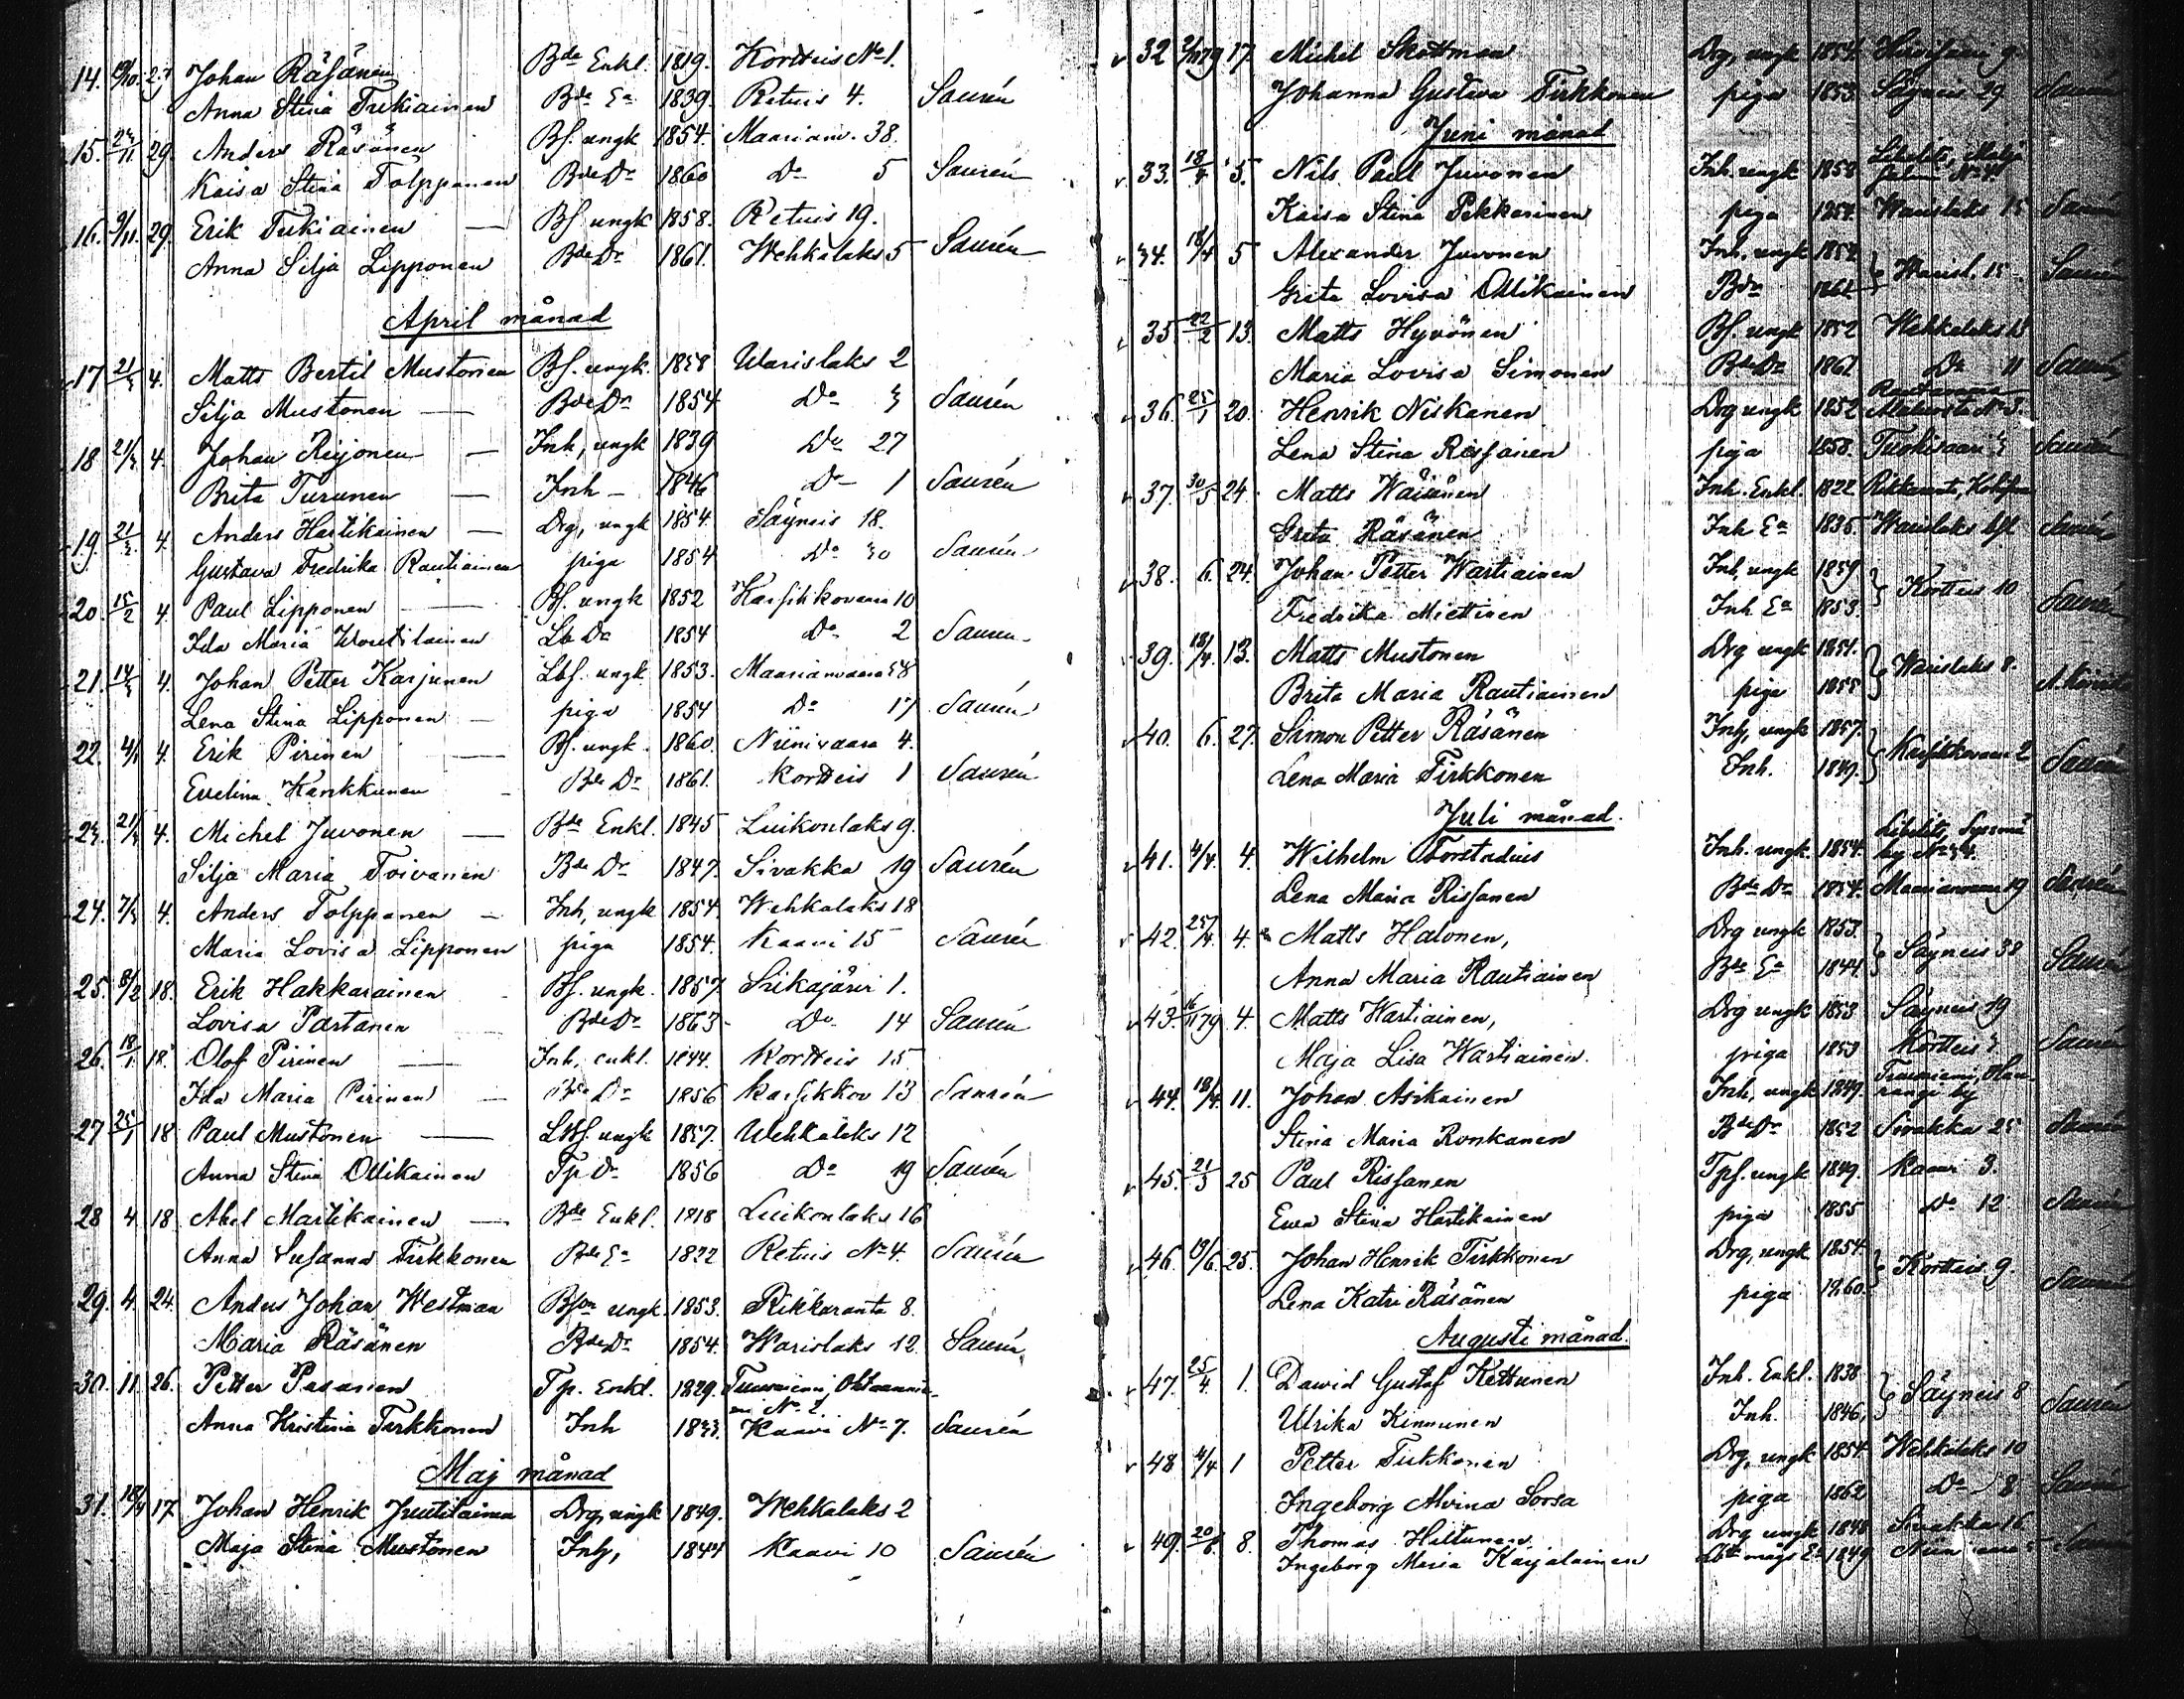 14. 19/10. 27 Johan Räsänen Bde Enkl. 1819. Kortteis No 1.
Anna Stina Tukiainen Bde Ea 1839. Retuis 4. Saurén
15. 24/11 29. Anders Räsänen Bf. ungk 1854. Maarianv. 38.
Kaisa Stina Tolppanen Bde Dr 1860 Do 5 Saurén
16. 9/11. 29. Erik Tukiainen — Bf ungk 1858. Retuis 19.
Anna Silja Lipponen Bde Dr 1861. Wehkalaks 5 Saurén
April månad
17 21/3 4. Matts Bertil Mustonen Bf. ungk. 1858 Warislaks 2
Silja Mustonen — Bde Dr 1854 Do 3 Saurén
18 21/3 4. Johan Reijonen — Inh, ungk 1839 Do 27
Brita Turunen — Inh — 1846 Do 1 Saurén
19. 21/3. 4. Anders Hartikainen — Drg, ungk 1854. Säyneis 18.
Gustava Fredrika Rautiainen piga 1854 Do 30 Saurén
20 15/2 4. Paul Lipponen — Bf. ungk 1852 Karsikkovaara 10
Ida Maria Woutilainen Lb Dr 1854 Do 2 Saurén
21. 14/3 4. Johan Petter Karjunen Lbf. ungk 1853. Maarianvaara 38
Lena Stina Lipponen — piga 1854 Do 17 Saurén
22. 4/1 4. Erik Pirinen — Bf. ungk. 1860. Niinivaara 4.
Evelina Karkkunen Bde Dr 1861. Kortteis 1 Saurén
23. 21/3 4. Michel Juvonen — Bde Enkl. 1845 Luikonlaks 9.
Silja Maria Toivanen Bde Dr 1847. Sivakka 19 Saurén
24. 7/3 4. Anders Tolppanen — Inh, ungk 1854. Wehkalaks 18
Maria Lovisa Lipponen piga 1854. Kaavi 15 Saurén
25. 8/2 18. Erik Hakkarainen Bf. ungk. 1857. Siikajärvi 1.
Lovisa Partanen — Bde Dr 1863 Do 14 Saurén
26. 18/1. 18. Olof Pirinen — Inh, enkl. 1844. Kortteis 15
Ida Maria Pirinen — Bde Dr 1856 Karsikkov 13 Saurén
27 25/1 18 Paul Mustonen — Lbf. ungk 1857. Wehkalaks 12
Anna Stina Ollikainen Tp Dr 1856 Do 19 Saurén
28 4 18. Abel Martikainen — Bde Enkl. 1818 Luikonlaks 16
Anna Susanna Tirkkonen Bde Ea 1822 Retuis No 4. Saurén
29. 4. 24. Anders Johan Westman Bson ungk. 1853. Rikkaranta 8.
Maria Räsänen Bde Dr 1854. Warislaks 12. Saurén
30. 11. 26. Petter Pasanen Tp. Enkl. 1829. Tuusniemi,
No 2
Anna Kristina Tirkkonen Inh 1833. Kaavi No 7. Saurén
Maj månad
31. 18/4 17. Johan Henrik Juutilainen Drg, ungk 1849. Wehkalaks 2
Maja Stina Mustonen Inh, 1844 Kaavi 10 Saurén
32 17. Michel Skottman Drg, ungk 1854. 9.
Johanna Gustava Tirkkonen piga 1853. Säyneis 29 Saurén
Juni månad
33. 18/4 5. Nils Paul Juvonen Inh. ungk 1858 Libelits,
Kaisa Stina Pekkarinen piga 1854. Warislaks 15 Saurén
34. 18/4 5 Alexander Juvonen Inh, ungk 1854 } Warisl. 15 Saurén
Greta Lovisa Ollikainen Bdr 1861
35 22/2 13. Matts Hyvönen Bf. ungk 1852 Wehkalaks 13
Maria Lovisa Simonen Bde Dr 1861 Do 11 Saurén
36. 25/1 20. Henrik Niskanen Drg ungk 1852 No 3.
Lena Stina Rissanen piga 1858. 3 Saurén
37. 30/5 24. Matts Wäisänen Inh. Enkl. 1822 Rikkarant,
Greta Räsänen Inh Ea 1835 Warislaks Saurén
38. 6. 24. Johan Petter Wartiainen Inh, ungk 1859 } Kortteis 10
Fredrika Miettinen Inh Ea 1853. Saurén
39. 18/4. 13. Matts Mustonen Drg ungk 1854. } Warislaks 8.
Brita Maria Rautiainen piga 1855
40. 6. 27. Simon Petter Räsänen Inh, ungk 1857. } Karsikkovaara 2
Lena Maria Tirkkonen Inh. 1849. Saurén
Juli månad.
41. 4/4. 4. Wilhelm Forstadius Inh. ungk. 1854. Libelits, Sysmä
by No 34.
Lena Maria Rissanen Bde Dr 1854. Maarianvaara 19 Saurén
42. 25/4. 4. Matts Halonen, Drg ungk 1853. } Säyneis 38
Anna Maria Rautiainen Bde Ea 1844. Saurén
43. 16/11 79 4. Matts Wartiainen, Drg ungk 1853 Säyneis 19
Maja Lisa Wartiainen. piga 1853 Kortteis 7 Saurén
44. 18/4. 11. Johan Asikainen Inh, ungk 1849. Tuusniemi,
by
Stina Maria Ronkanen Bde Dr 1852 Sivakka 25 Saurén
45. 21/3 25 Paul Rissanen Tpf. ungk 1849. Kaavi 3.
Eva Stina Hartikainen piga 1855 Do 12 Saurén
46. 13/6. 25. Johan Henrik Tirkkonen Drg, ungk 1854. } Kortteis 9.
Lena Katri Räsänen piga 1860. Saurén
Augusti månad.
47. 25/4. 1. David Gustaf Kettunen Inh. Enkl. 1838 } Säyneis 8
Ulrika Kinnunen Inh. 1846, Saurén
48 4/4 1 Petter Tirkkonen Drg, ungk 1854. Wehkalaks 10
Ingeborg Alvina Sorsa piga 1862 Do 8 Saurén
49. 20/6 8. Thomas Hiltunen Drg ungk 1848 Sivakka 16
Ingeborg Maria Karjalainen Lbde mågs Ea 1849 Saurén